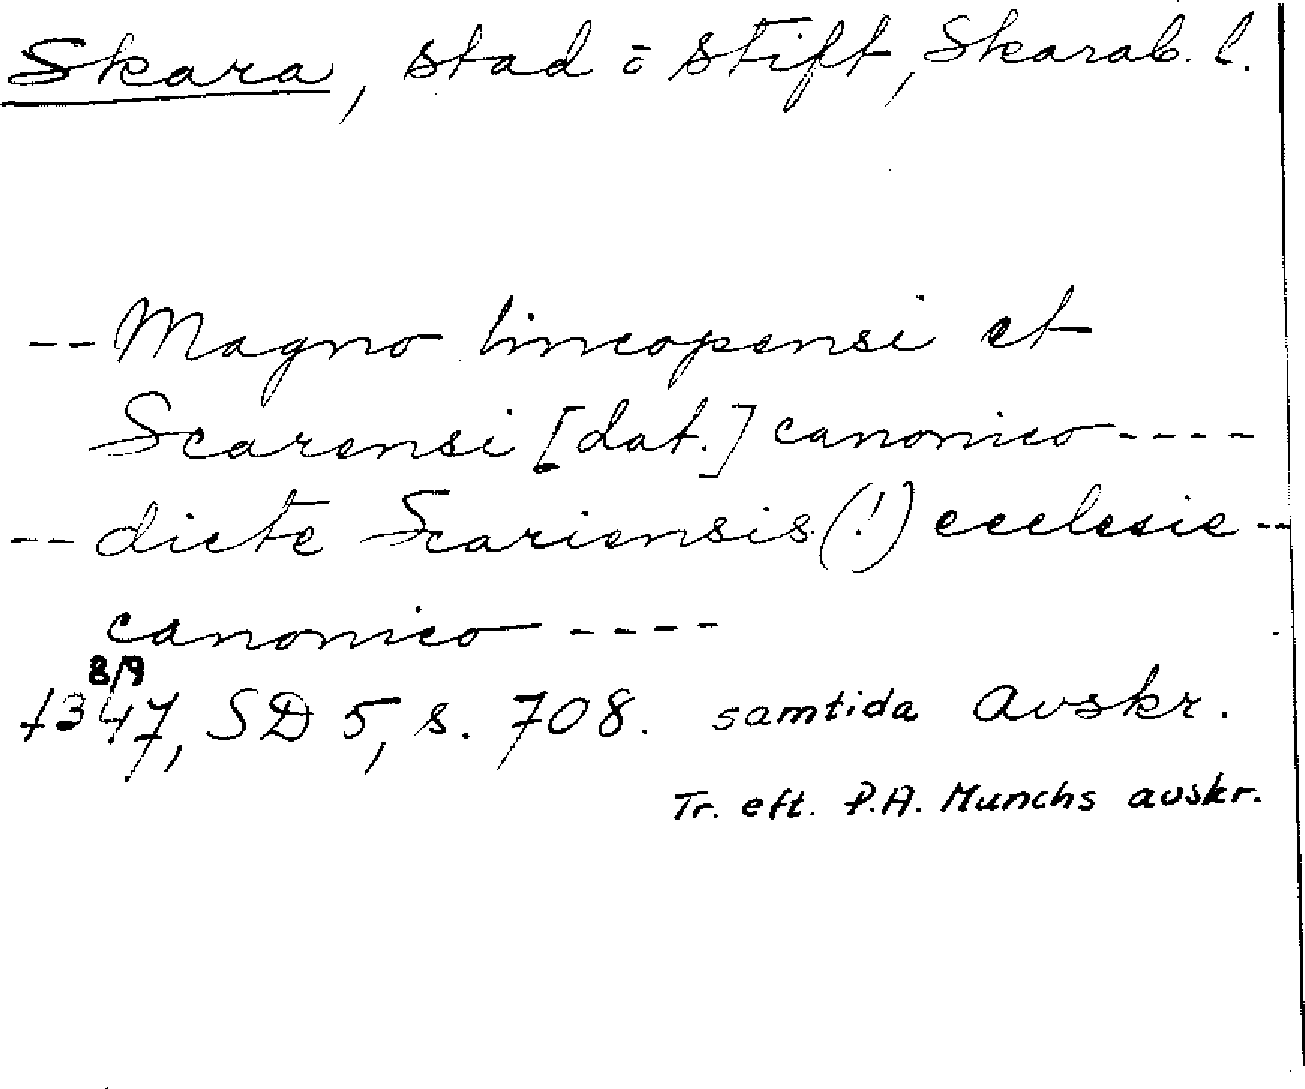 Skara, stad o stift, Skarab. l.
-- Magno lincopensi et
Scarensi [dat.] canonico ----
-- dicte Scariensis (!) ecclesie --
canonico ----
8/9
1347, SD 5, s. 708. samtida Avskr.
Tr. eft. P.A. Munchs avskr.